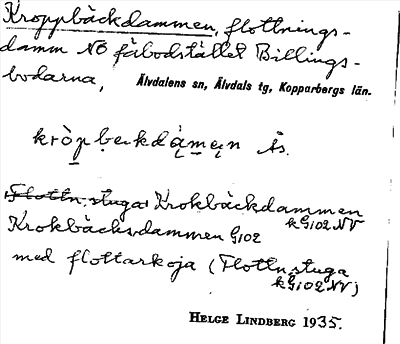 Kroppbäckdammen, flottnings-
damm NO fäbodstället Billings-
bodarna, Älvdalens sn, Älvdals tg, Kopparbergs län.
Ås.
Flottn.stuga Krokbäckdammen
kG102NV
Krokbäcksdammen G102
med flottarkoja (Flottn.stuga
kG102NV)
HELGE LINDBERG 1935.